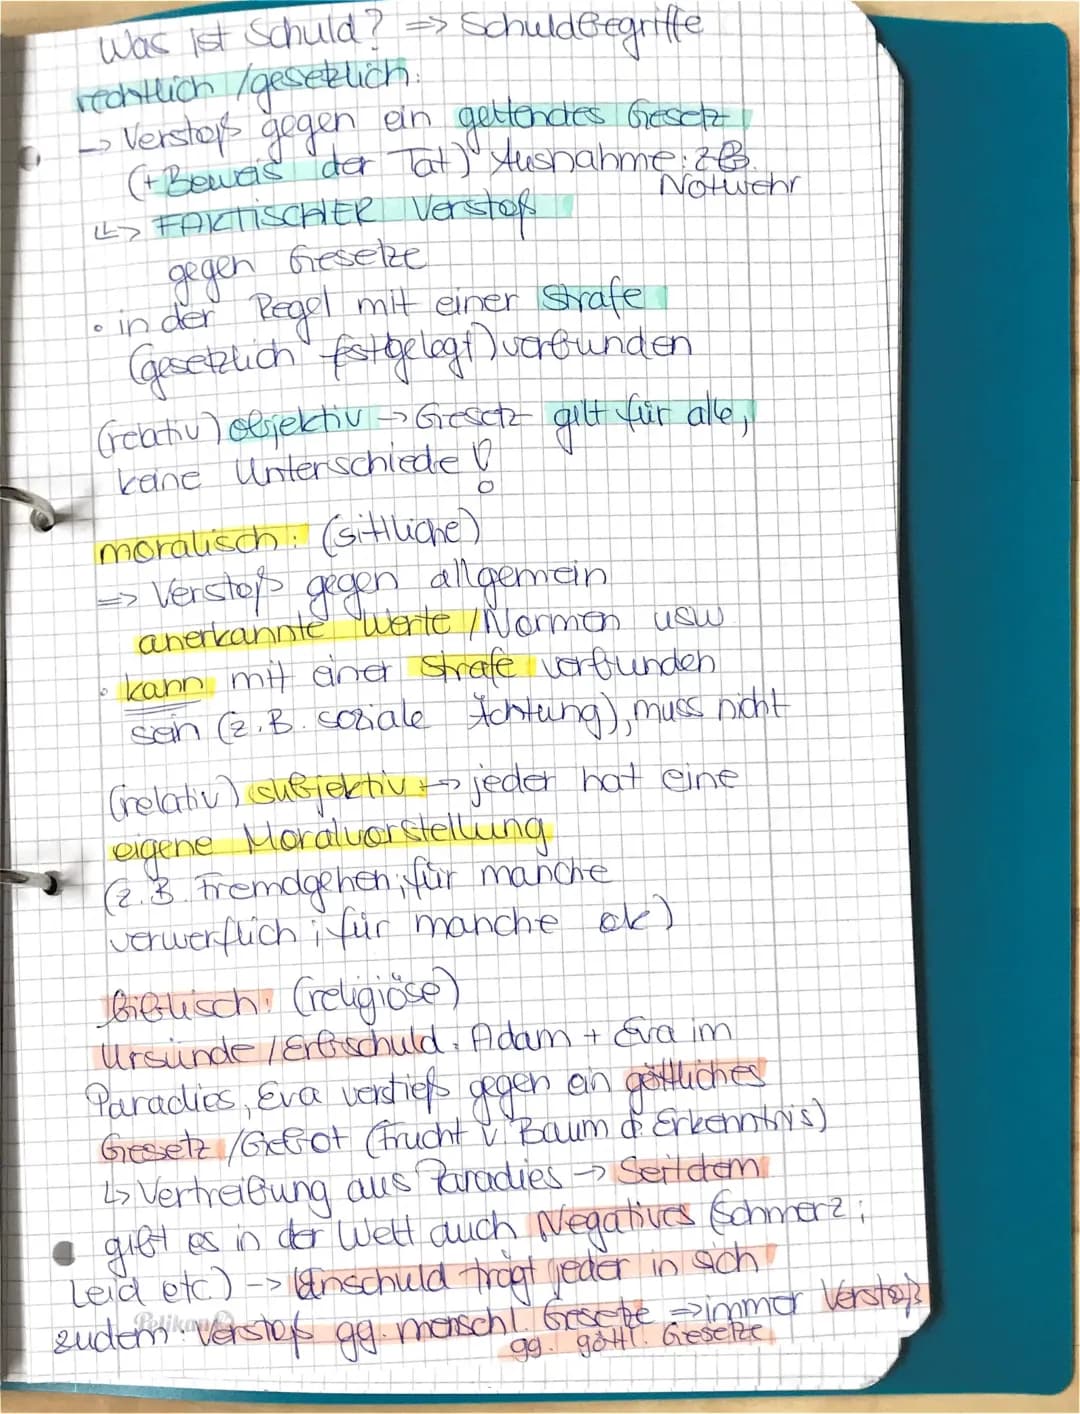 Was ist Schuld? => Schuldbegriffe
rechtlich /gesetzlich:
-> Verstoß gegen ein geltendes Gesetz
(+Beweis der Tat) Ausnahme: z.B.
Notwehr
↳> FAKTISCHER Verstoß
gegen Gesetze
• in der Regel mit einer Strafe
(gesetzlich festgelegt) verbunden
(relativ) objektiv -> Gesetz gilt für alle,
keine Unterschiede!
moralisch: (sittliche)
=> Verstoß gegen allgemein
anerkannte Werte /Normen usw
• kann mit einer Strafe verbunden
sein (z.B. soziale Ächtung), muss nicht
(relativ) subjektiv -> jeder hat eine
eigene Moralvorstellung
(z.B. Fremdgehen; für manche
verwerflich; für manche ok)
biblisch: (religiöse)
Ursünde /Erbschuld: Adam + Eva im
Paradies, Eva verstieß gegen ein göttliches
Gesetz /Gebot (Frucht v. Baum d. Erkenntnis)
↳ Vertreibung aus Paradies -> Seitdem
gibt es in der Welt auch Negatives (Schmerz;
Leid etc.) -> schuld trägt jeder in sich
zudem: Verstoß gg. menschl. Gesetze => immer Verstoß
gg. göttl. Gesetze
Pelikan